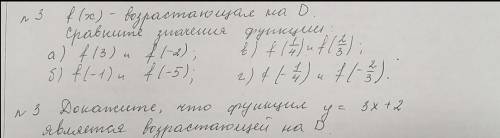 №3 f(x) - возрастающая на D.
Сравните значения функции:
а) f(3) и f(-2); в) f(1/4) и f(2/3);
б) f(-1) и f(-5); г) f(-1/4) и f(-2/3).
№3 Докажите, что функция y = 3x+2
является возрастающей на D.